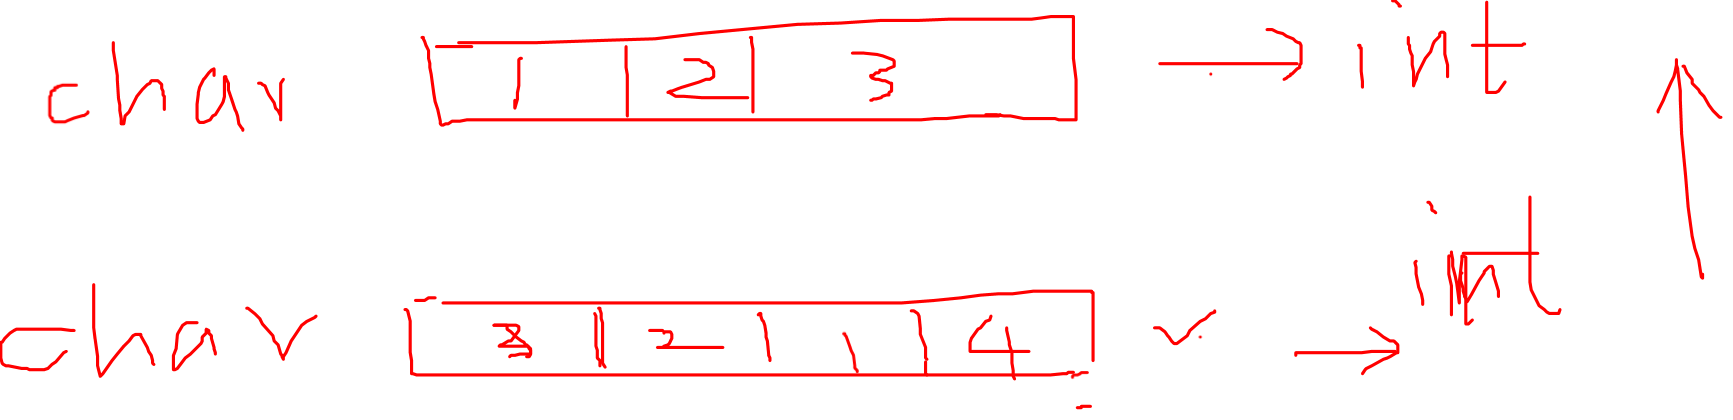 char 1 2 3 → int
char 3 2 1 4 ✓ → int